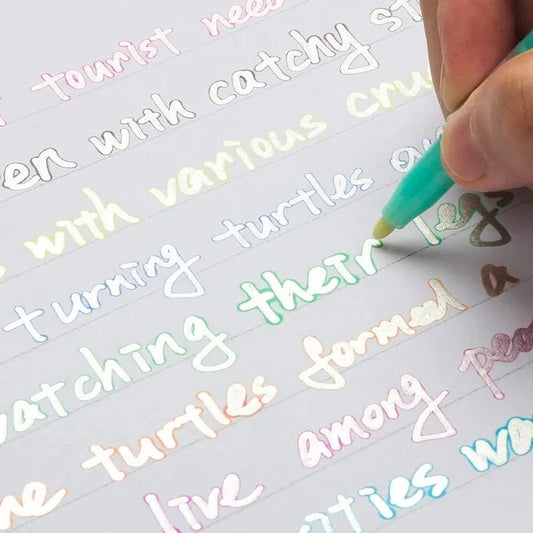 tourist need
with catchy
with various
turning turtles
watching their legs
turtles formed a
live among